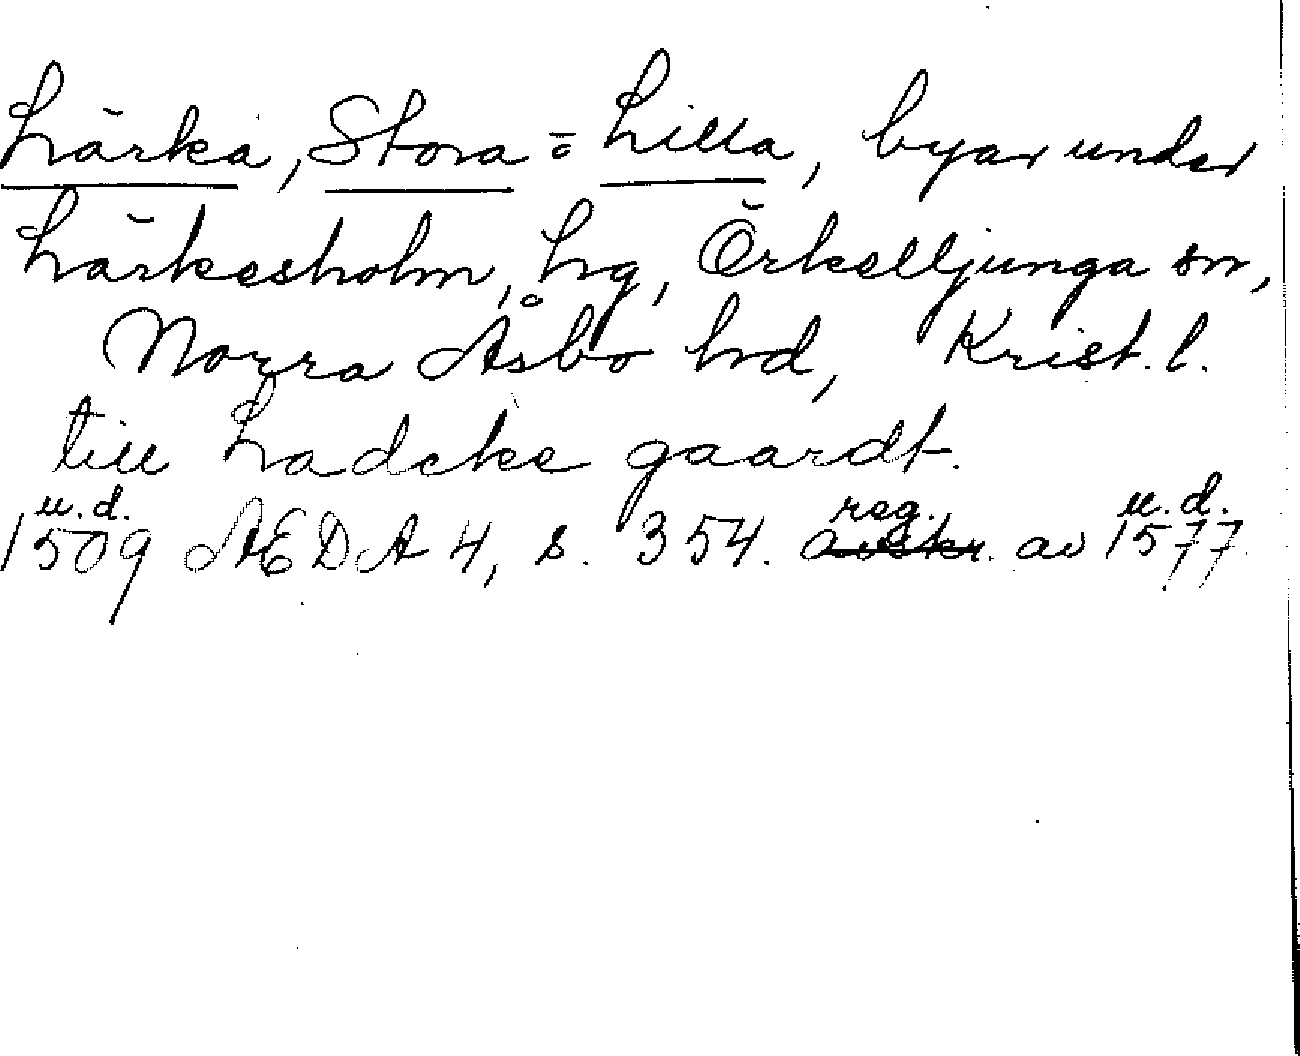 Lärka, Stora o̅ Lilla, byar under
Lärkesholm, hg, Örkelljunga sn,
Norra Åsbo hd, Krist. l.
till Ladcke gaardt.
u.d. reg. u.d.
1509 ÆDA 4, s. 354. avskr. av 1577